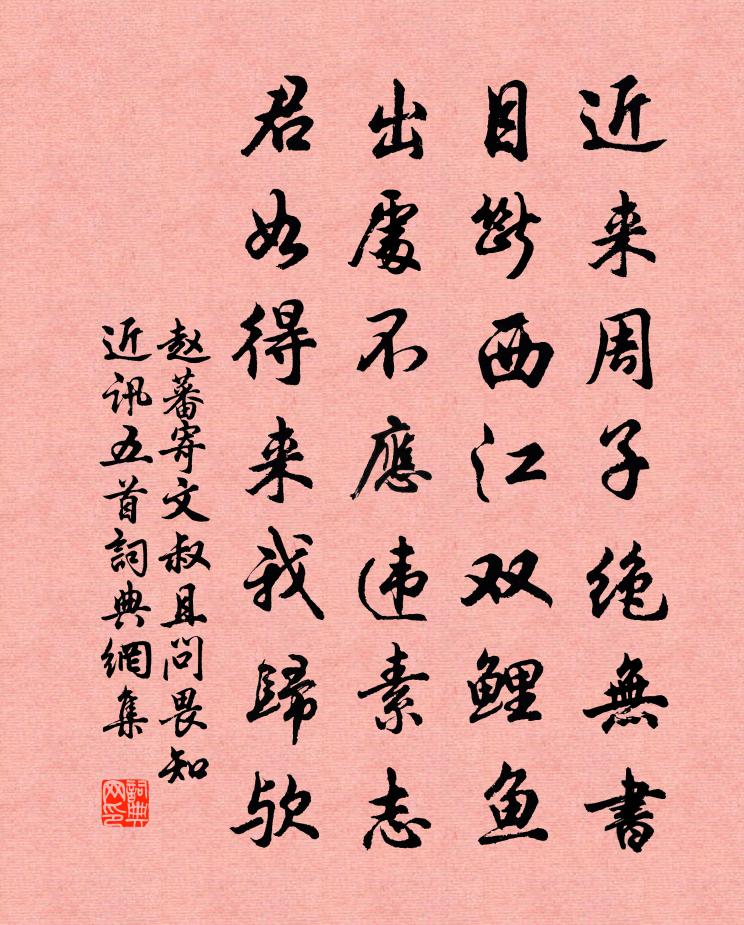 近来周子绝無書
目斷西江双鲤鱼
出處不應违素志
君如得来我歸欤
赵蕃寄文叔且问畏知
近訊五首詞典網集
詞典
网印